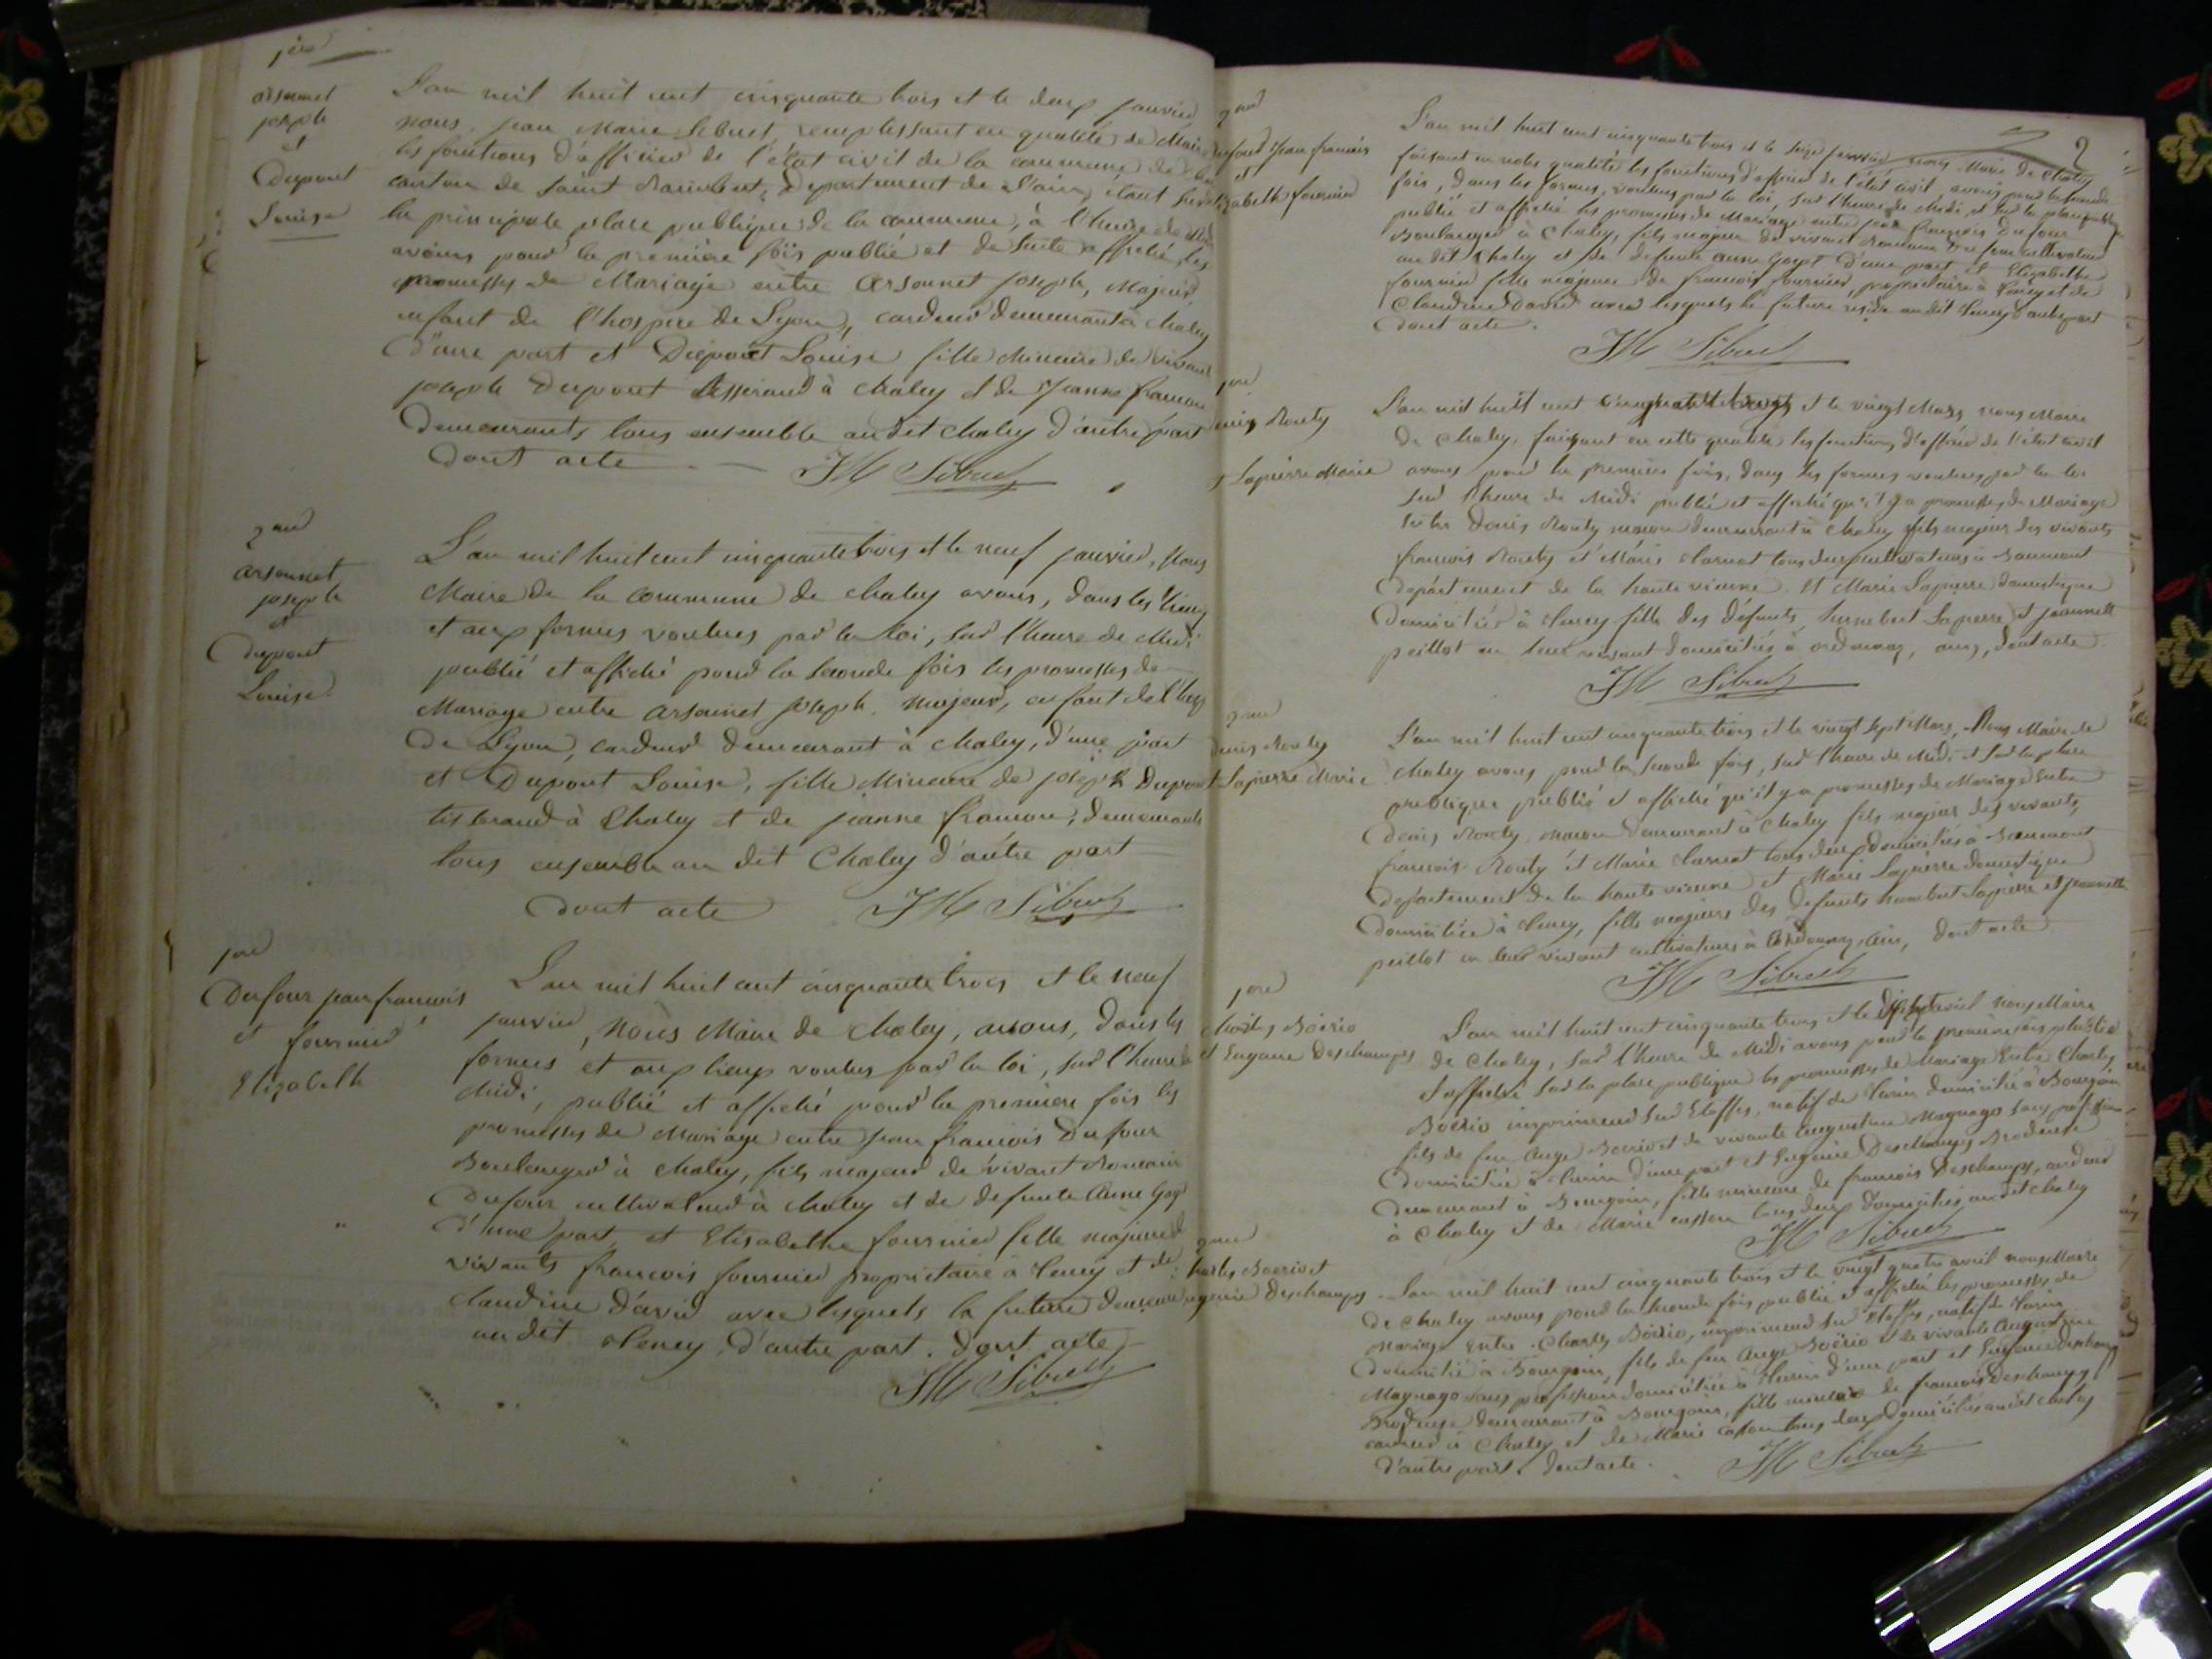 1ere
arsonnet
joseph
et
Dupont
Louise
L'an mil huit cent cinquante trois et le deux janvier
nous, jean Marie Sibuet, remplissant en qualité de Maire
les fonctions d'officier de l'état civil de la commune de
canton de saint Rambert, Département de l'ain, étant sur
la principale place publique de la commune, à l'heure de midi
avons pour la première fois publié et de suite affiché, les
promesses de Mariage entre Arsonnet joseph, Majeur,
enfant de l'hospice de Lyon, cardeur demeurant à chaley
D'une part et Dupont Louise fille Mineure de vivant
joseph Dupont Tisserand à chaley et de jeanne françon
Demeurants tous ensemble audit chaley d'autre part
Dont acte
JM Sibuet
2eme
arsonnet
joseph
et
Dupont
Louise
L'an mil huit cent cinquante trois et le neuf janvier, Nous
Maire de la commune de chaley avons, dans les lieux
et aux formes voulues par la loi, sur l'heure de Midi
publié et affiché pour la seconde fois les promesses de
Mariage entre arsonnet joseph, majeur, enfant de l'hosp
De Lyon, cardeur demeurant à chaley, d'une part
et Dupont Louise, fille Mineure de joseph Dupont
tisserand à Chaley et de jeanne françon, demeurants
tous ensemble au dit Chaley d'autre part
Dont acte
JM Sibuet
1ere
Dufour jean françois
et fournier
Elizabeth
L'an mil huit cent cinquante trois et le neuf
janvier, Nous Maire de Chaley, avons, dans les
formes et aux lieux voulus par la loi, sur l'heure de
Midi, publié et affiché pour la première fois les
promesses de Mariage entre jean françois Dufour
Boulanger à chaley, fils majeur de vivant Romain
Dufour cultivateur à chaley et de défunte Anne
d'une part et Elisabethe fournier fille majeure de
vivants françois fournier propriétaire à Cleney et de
claudine David avec lesquels la future demeure
au dit Cleney, d'autre part. Dont acte
JM Sibuet
2
2eme
Dufour Jean françois
et
Elizabeth fournier
L'an mil huit cent cinquante trois et le seize janvier nous Maire de Chaley
faisant en notre qualité les fonctions d'officier de l'état civil, avons pour la seconde
fois, dans les formes, voulues par la loi, sur l'heure de Midi, et sur la place publique
publié et affiché les promesses de Mariage entre jean françois Dufour
Boulanger à Chaley, fils majeur de vivant Romain Dufour cultivateur
au dit Chaley et de défunte anne d'une part et Elizabethe
fournier fille majeure de françois fournier, propriétaire à Cleney et de
Claudine David avec lesquels la future réside au dit Cleney d'autre part
Dont acte.
JM Sibuet
1ere
Denis Routy
et Lapierre Marie
L'an mil huit cent cinquante trois et le vingt Mars nous Maire
de Chaley, faisant en cette qualité les fonctions d'officier de l'état civil
avons pour la première fois, dans les formes voulues par la loi
sur l'heure de Midi publié et affiché qu'il y a promesses de Mariage
entre Denis Routy maçon demeurant à Chaley fils majeur des vivants
françois Routy et Marie tous deux cultivateurs à Beaumont
Département de la haute vienne et Marie Lapierre domestique
Domiciliée à Cleney fille des défunts humbert Lapierre et jeannette
peillot en leur vivant domiciliés à ordonnaz, ain, dont acte.
JM Sibuet
2eme
Denis Routy
Lapierre Marie
L'an mil huit cent cinquante trois et le vingt sept Mars, Nous Maire de
Chaley avons pour la seconde fois, sur l'heure de Midi et sur la place
publique publié et affiché qu'il y a promesses de Mariage Entre
Denis Routy, maçon demeurant à Chaley fils majeur des vivants
françois Routy et Marie tous deux domiciliés à Beaumont
département de la haute vienne et Marie Lapierre domestique
domiciliée à Cleney, fille majeure des défunts humbert Lapierre et jeannette
peillot en leur vivant cultivateurs à Ordonnaz, ain, dont acte
JM Sibuet
1ere
Charles Boério
et Eugénie Deschamps
L'an mil huit cent cinquante trois et le avril nous Maire
de Chaley, sur l'heure de Midi avons pour la première fois publié
et affiché sur la place publique les promesses de Mariage Entre Charles
Boério imprimeur sur Etoffes, natif de Turin domicilié à Bourgoin
fils de feu Ange Boério et de vivante augustine Magnago sans profession
Domiciliée à Turin d'une part et Eugénie Deschamps Brodeuse
demeurant à Bourgoin, fille mineure de françois Deschamps, cardeur
à Chaley et de Marie tous deux domiciliés au dit chaley
JM Sibuet
2eme
Charles Boério et
Eugénie Deschamps
L'an mil huit cent cinquante trois et le vingt quatre avril nous Maire
de Chaley avons pour la seconde fois publié et affiché les promesses de
Mariage Entre Charles Boério, imprimeur sur Etoffes, natif de Turin
Domicilié à Bourgoin, fils de feu Ange Boério et de vivante Augustine
Magnago sans profession domiciliée à Turin d'une part et Eugénie Deschamps
Brodeuse demeurant à Bourgoin, fille mineure de françois Deschamps
cardeur à Chaley et de Marie tous deux domiciliés au dit chaley
D'autre part. Dont acte.
JM Sibuet